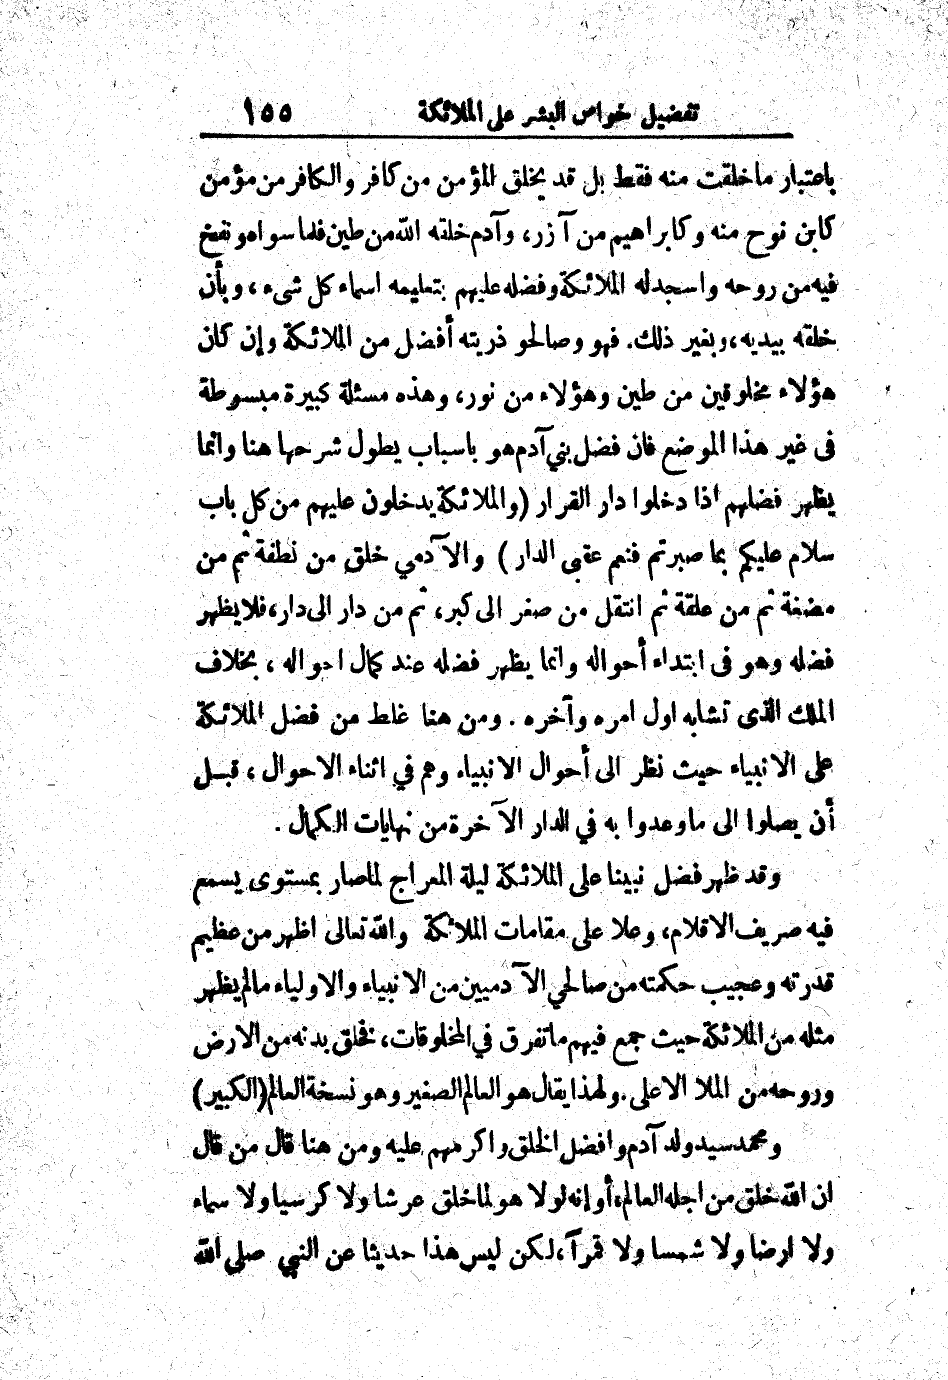 تفضيل خواص البشر على الملائكة ١٥٥
باعتبار ما خلقت منه فقط بل قد يخلق المؤمن من كافر والكافر من مؤمن
كابن نوح منه وكابراهيم من آزر، وآدم خلقه الله من طين فلما سواه ونفخ
فيه من روحه واسجد له الملائكة وفضله عليهم بتعليمه اسماء كل شيء، وبأن
خلقه بيديه، وبغير ذلك. فهو وصالحو ذريته أفضل من الملائكة وإن كان
هؤلاء مخلوقين من طين وهؤلاء من نور، وهذه مسئلة كبيرة مبسوطة
فى غير هذا الموضع فان فضل بني آدم هو باسباب يطول شرحها هنا وانما
يظهر فضلهم اذا دخلوا دار القرار (والملائكة يدخلون عليهم من كل باب
سلام عليكم بما صبرتم فنعم عقبى الدار) والآدمي خلق من نطفة ثم من
مضغة ثم من علقة ثم انتقل من صغر الى كبر، ثم من دار الى دار، فلا يظهر
فضله وهو فى ابتداء أحواله وانما يظهر فضله عند كمال احواله، بخلاف
الملك الذى تشابه اول امره وآخره. ومن هنا غلط من فضل الملائكة
على الانبياء حيث نظر الى أحوال الانبياء وهم في اثناء الاحوال، قبل
أن يصلوا الى ما وعدوا به في الدار الآخرة من نهايات الكمال.
وقد ظهر فضل نبينا على الملائكة ليلة المعراج لما صار بمستوى يسمع
فيه صريف الاقلام، وعلا على مقامات الملائكة والله تعالى اظهر من عظيم
قدرته وعجيب حكمته من صالحي الآدميين من الانبياء والاولياء مالم يظهر
مثله من الملائكة حيث جمع فيهم ما تفرق في المخلوقات، فخلق بدنه من الارض
وروحه من الملا الاعلى. ولهذا يقال هو العالم الصغير وهو نسخة العالم (الكبير)
ومحمد سيد ولد آدم وافضل الخلق واكرمهم عليه ومن هنا قال من قال
ان الله خلق من اجله العالم، أو إنه لولا هو لما خلق عرشا ولا كرسيا ولا سماء
ولا ارضا ولا شمسا ولا قمرآ، لكن ليس هذا حديثا عن النبي صلى الله